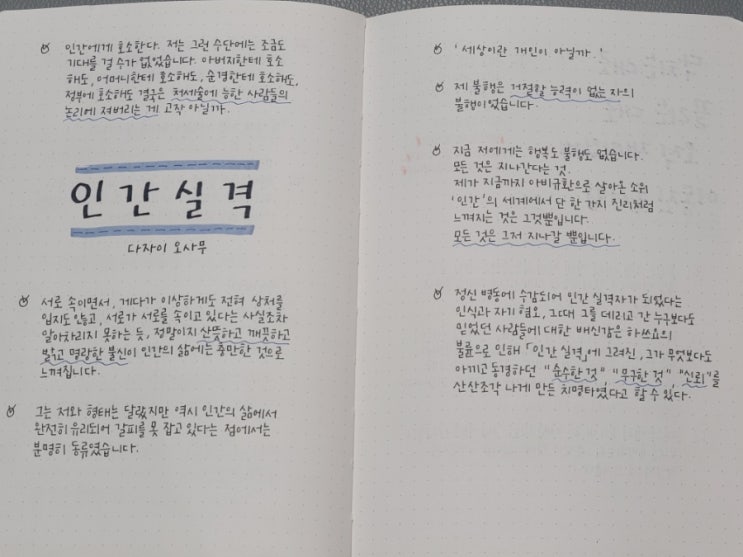 인간에게 호소한다. 저는 그런 수단에는 조금도
기대를 걸 수가 없었습니다. 아버지한테 호소
해도, 어머니한테 호소해도, 순경한테 호소해도,
정부에 호소해도 결국은 처세술에 능한 사람들의
논리에 져버리는 게 고작 아닐까.
인간실격
다자이 오사무
서로 속이면서, 게다가 이상하게도 전혀 상처를
입지도 않고, 서로가 서로를 속이고 있다는 사실조차
알아차리지 못하는 듯, 정말이지 산뜻하고 깨끗하고
밝고 명랑한 불신이 인간의 삶에는 충만한 것으로
느껴집니다.
그는 저와 형태는 달랐지만 역시 인간의 삶에서
완전히 유리되어 갈피를 못 잡고 있다는 점에서는
분명히 동류였습니다.
'세상이란 개인이 아닐까.'
제 불행은 거절할 능력이 없는 자의
불행이었습니다.
지금 저에게는 행복도 불행도 없습니다.
모든 것은 지나간다는 것.
제가 지금까지 아비규환으로 살아온 소위
'인간'의 세계에서 단 한 가지 진리처럼
느껴지는 것은 그것뿐입니다.
모든 것은 그저 지나갈 뿐입니다.
정신 병동에 수감되어 인간 실격자가 되었다는
인식과 자기 혐오, 그때 그를 데리고 간 누구보다도
믿었던 사람들에 대한 배신감은 하쓰요의
불륜으로 인해 「인간 실격」에 그려진, 그가 무엇보다도
아끼고 동경하던 "순수한 것", "무구한 것", "신뢰"를
산산조각 나게 만든 치명타였다고 할 수 있다.